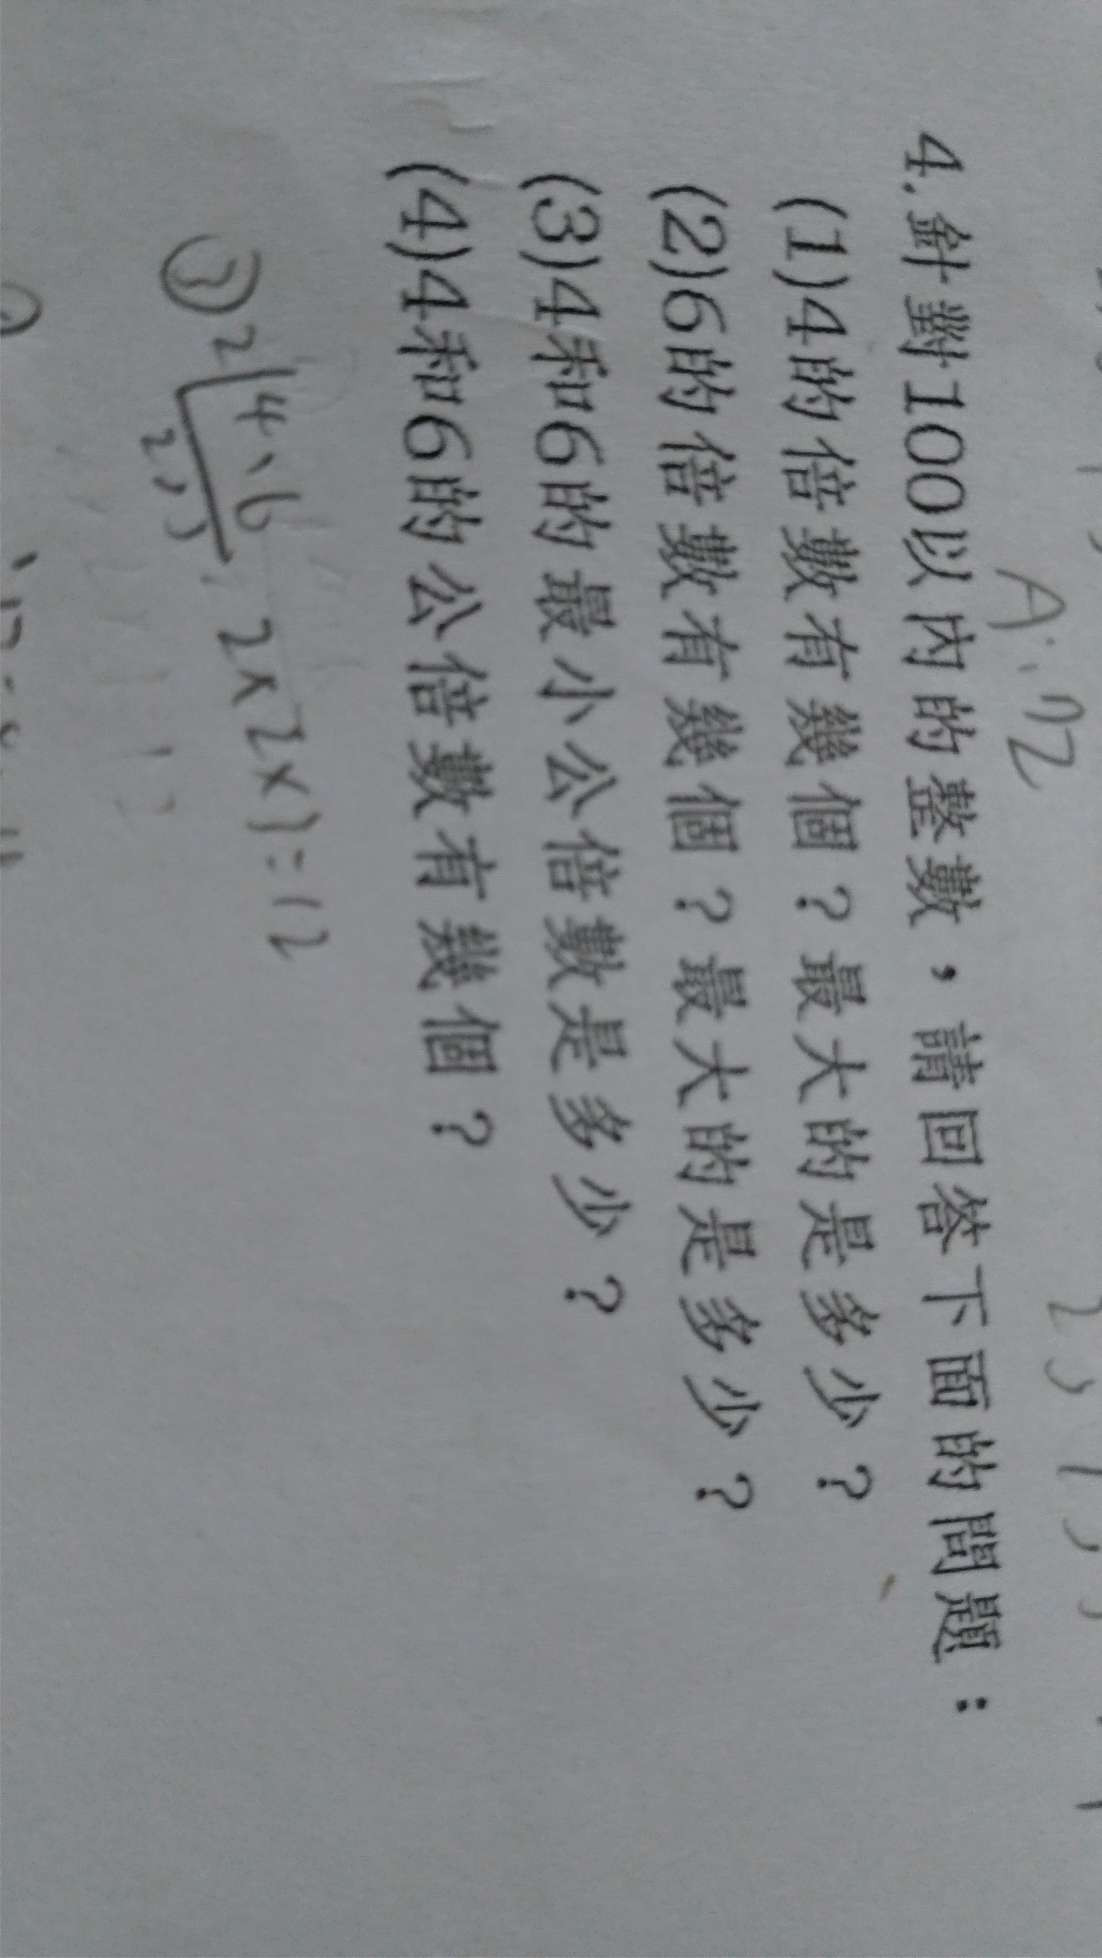 A:72
4.針對100以內的整數，請回答下面的問題：
(1)4的倍數有幾個？最大的是多少？
(2)6的倍數有幾個？最大的是多少？
(3)4和6的最小公倍數是多少？
(4)4和6的公倍數有幾個？
③ 2 4、6 2x2x3=12
2,3